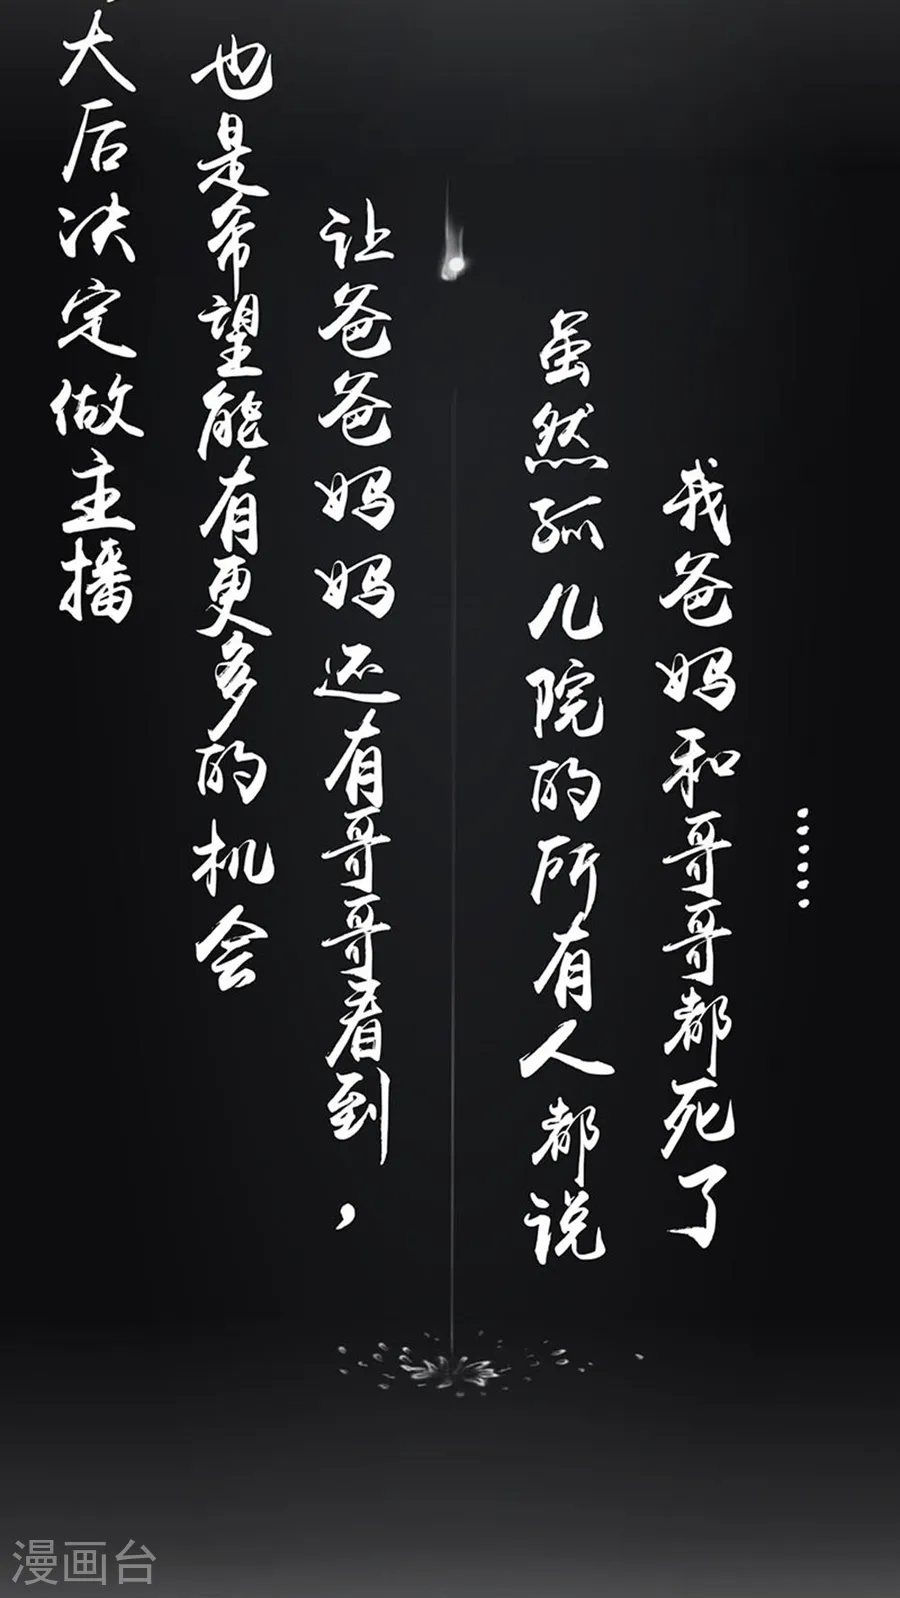 大后决定做主播
也是希望能有更多的机会
让爸爸妈妈还有哥哥看到，
虽然孤儿院的所有人都说
我爸妈和哥哥都死了
……
漫画台